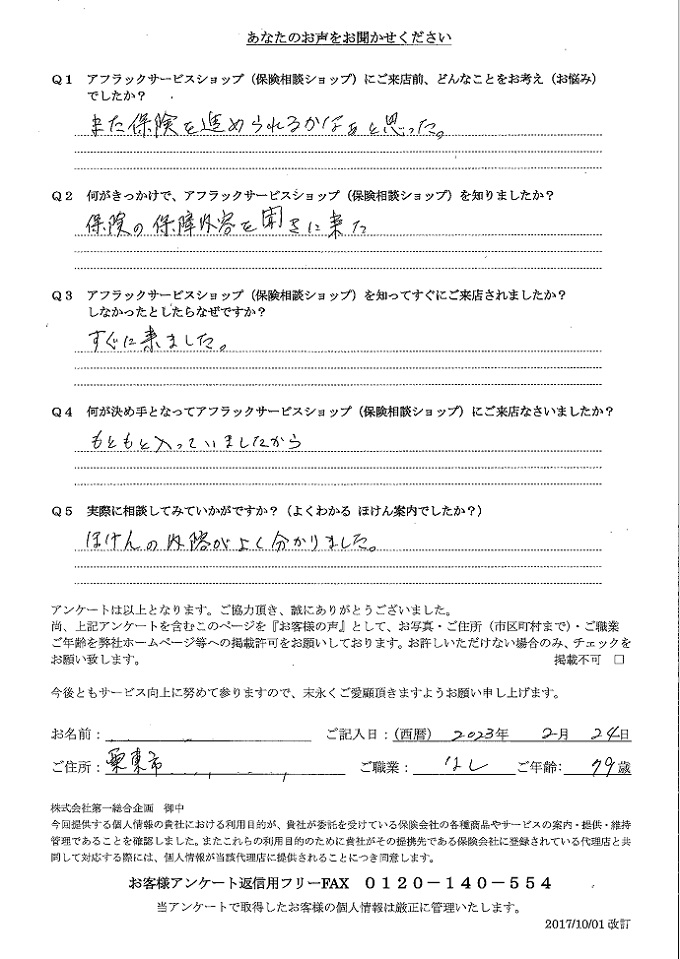 あなたのお声をお聞かせください
Q1 アフラックサービスショップ（保険相談ショップ）にご来店前、どんなことをお考え（お悩み）
でしたか？
また保険を進められるかなぁと思った。
Q2 何がきっかけで、アフラックサービスショップ（保険相談ショップ）を知りましたか？
保険の保障内容を聞きに来た
Q3 アフラックサービスショップ（保険相談ショップ）を知ってすぐにご来店されましたか？
しなかったとしたらなぜですか？
すぐに来ました。
Q4 何が決め手となってアフラックサービスショップ（保険相談ショップ）にご来店なさいましたか？
もともと入っていましたから
Q5 実際に相談してみていかがですか？（よくわかる ほけん案内でしたか？）
ほけんの内容がよく分かりました。
アンケートは以上となります。ご協力頂き、誠にありがとうございました。
尚、上記アンケートを含むこのページを『お客様の声』として、お写真・ご住所（市区町村まで）・ご職業
ご年齢を弊社ホームページ等への掲載許可をお願いしております。お許しいただけない場合のみ、チェックを
お願い致します。 掲載不可 □
今後ともサービス向上に努めて参りますので、末永くご愛顧頂きますようお願い申し上げます。
お名前： ご記入日：（西暦） 2023年 2月 24日
ご住所： 栗東市 ご職業： なし ご年齢： 79歳
株式会社第一総合企画 御中
今回提供する個人情報の貴社における利用目的が、貴社が委託を受けている保険会社の各種商品やサービスの案内・提供・維持
管理であることを確認しました。またこれらの利用目的のために貴社がその提携先である保険会社に登録されている代理店と共
同して対応する際には、個人情報が当該代理店に提供されることにつき同意します。
お客様アンケート返信用フリーFAX 0120－140－554
当アンケートで取得したお客様の個人情報は厳正に管理いたします。
2017/10/01 改訂